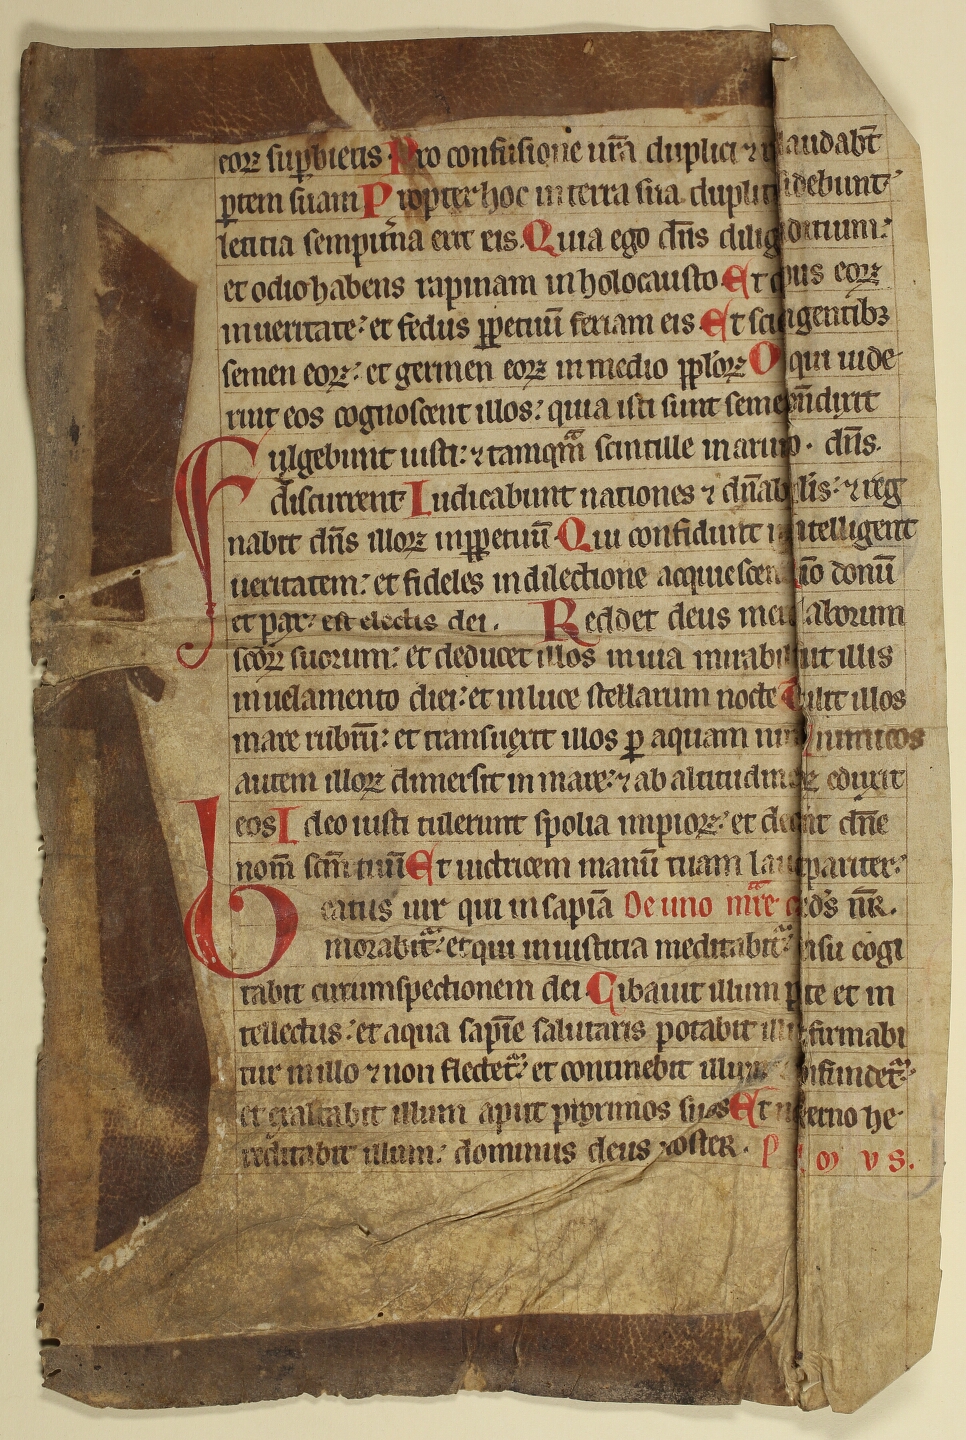 eoꝝ suꝑbietis Pro confusione ur̄a duplici ⁊ laudabt̄
ꝑtem suam Propter hoc in terra sua dupli sidebunt
letitia sempit̄na erit eis. Quia ego dn̄s dilig
et odio habens rapinam in holocausto Et pus eoꝝ
in ueritate: et fedus ꝑpetuū feriam eis Et sci in gentibꝫ
semen eoꝝ: et germen eoꝝ in medio pp̄loꝝ O qui uide
rint eos cognoscent illos: quia isti sunt semen dixit
Fulgebunt iusti: ⁊ tamqm̄ scintille in arun. dn̄s.
discurrent Iudicabunt nationes ⁊ dn̄ab lis: ⁊ reg
nabit dn̄s illoꝝ in ꝑpetuū Qui confidunt intelligent
ueritatem: et fideles in dilectione acquiescen io donū
et pax est electis dei. Reddet deus mer laborum
scōꝝ suorum: et deducet illos in uia mirabi ut illis
in uelamento diei: et in luce stellarum nocte T ulit illos
mare rubrū: et transuexit illos ꝑ aquam ni inimicos
autem illoꝝ dimersit in mare: ⁊ ab altitudin eduxit
eos Ideo iusti tulerunt spolia impioꝝ: et de dn̄e
nom̄ scm̄ tuū Et uictricem manū tuam lau pariter:
Beatus uir qui in sapīa De uno mr̄e ds̄ nr̄.
morabit᷑: et qui in iustitia meditabit᷑: nsu cogi
tabit circumspectionem dei Cibauit illum te et in
tellectus: et aqua sapīe salutaris potabit ill firmabi
tur in illo ⁊ non flectet᷑: et continebit illum fundet᷑:
et exaltabit illum aput proximos suos Et n eterno he
reditabit illum: dominus deus noster. P m v s.